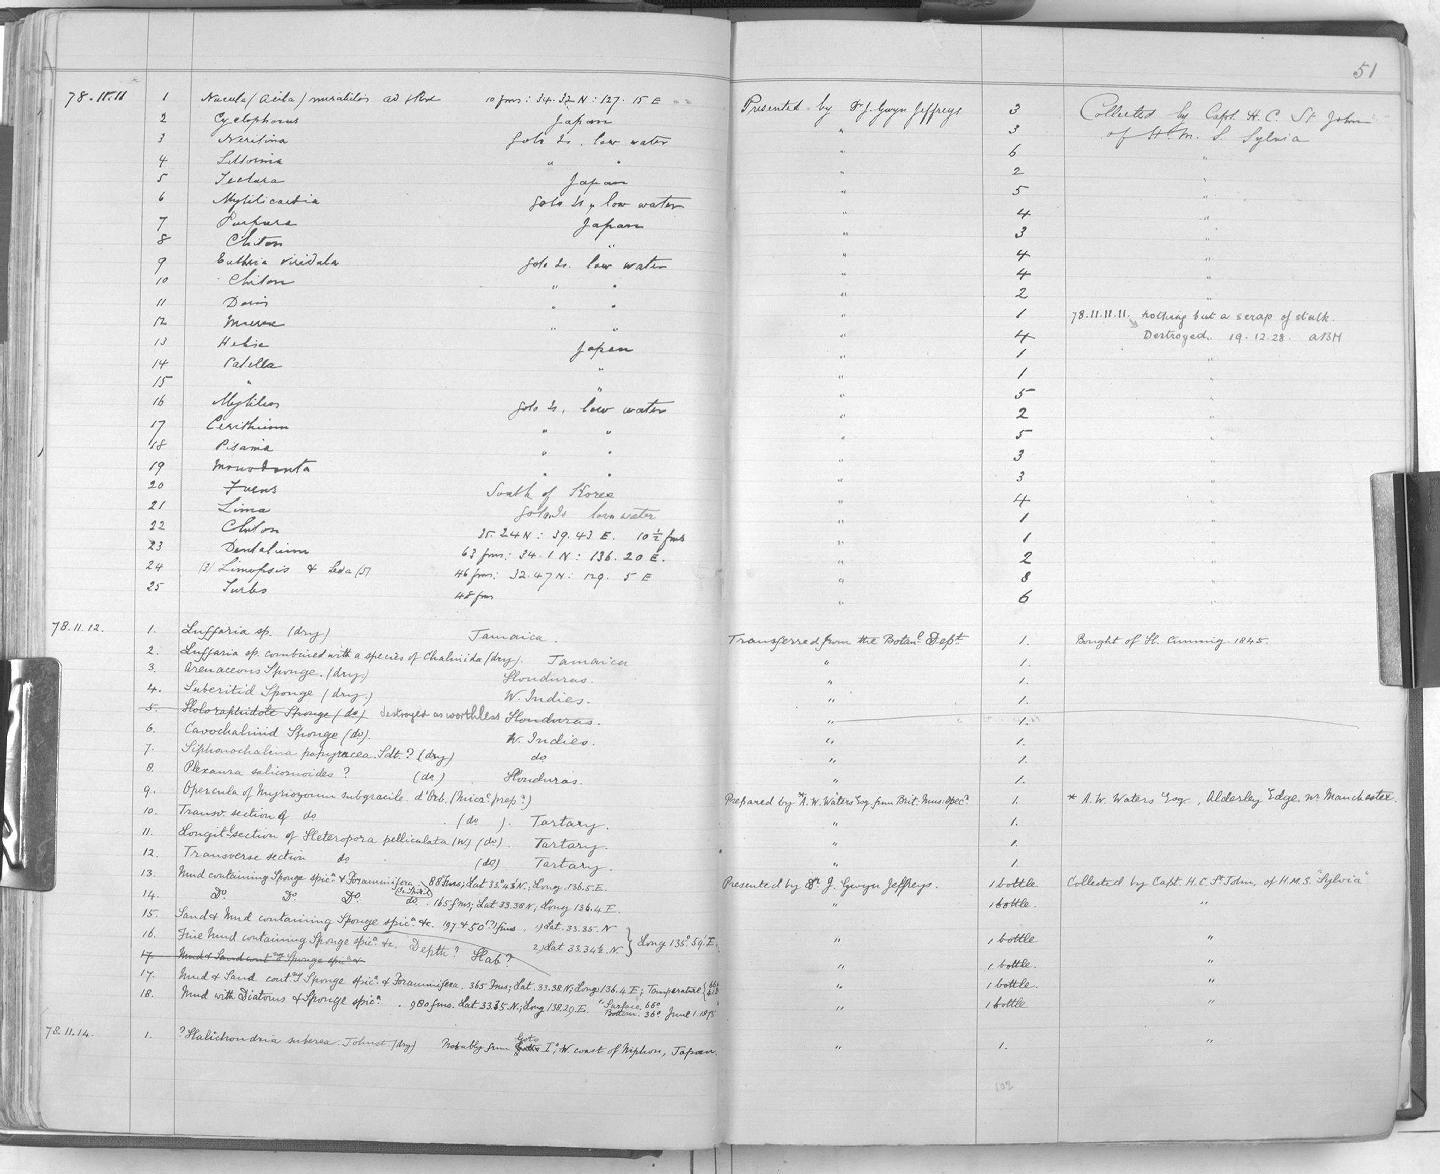 51
78.11.11 1 Nucula (Acila) mirabilis ad & Rve 10 fms: 34.32 N: 127.15 E Presented by Dr J. Gwyn Jeffreys 3 Collected by Capt. H. C. St. John
2 Cyclophorus Japan " 3 of H. M. S. Sylvia
3 Neritina Goto Is. low water " 6 "
4 Littorina " " " 2 "
5 Tectura Japan " 5 "
6 Mytilicardia Goto Is, low water " 4 "
7 Purpura Japan " 3 "
8 Chiton " " 4 "
9 Euthria viridula Goto Is. low water " 4 "
10 Chiton " " " 2 "
11 Doris " " " 1 78.11.11.11. nothing but a scrap of stalk.
12 Murex " " " 4 Destroyed. 19.12.28.
13 Helix Japan " 1 "
14 Patella " " 1 "
15 " " " 5 "
16 Mytilus Goto Is, low water " 2 "
17 Cerithium " " " 5 "
18 Pisania " " " 3 "
19 Monodonta " " " 3 "
20 Fusus South of Korea " 4 "
21 Lima Goto Is low water " 1 "
22 Chiton 35.24 N: 39.43 E. 10 ½ fms " 1 "
23 Dentalium 63 fms: 34.1 N: 136.20 E. " 2 "
24 (3) Limopsis & Leda (5) 46 fms: 32.47 N: 129.5 E " 8 "
25 Turbo 48 fms " 6 "
78.11.12. 1. Luffaria sp. (dry) Jamaica. Transferred from the Botanl. Dept. 1. Bought of H. Cuming 1845.
2. Luffaria sp. combined with a species of Chalinida (dry). Jamaica " 1.
3. Arenaceous Sponge. (dry) Honduras. " 1.
4. Suberitid Sponge (dry) W. Indies. " 1.
5. Holoraphidote Sponge (do) destroyed as worthless Honduras. " 1.
6. Cavochalinid Sponge (do). W. Indies. " 1.
7. Siphonochalina papyracea. Sdt. ? (dry) do " 1.
8. Plexaura salicornoides? (do) Honduras. " 1.
9. Opercula of Myriozoum subgracile. d'Orb. (Micr. prepn.) Prepared by *A. W. Waters Esq. from Brit. Mus. specn. 1. * A. W. Waters Esq, Alderley Edge, nr Manchester.
10. Transv. section of do (do). Tartary. " 1.
11. Longitl. section of Heteropora pelliculata (W.) (do). Tartary. " 1.
12. Transverse section do (do) Tartary. " 1.
13. Mud containing Sponge spica. & Foraminifera. 88 fms; Lat 33.4 N; Long 136.5 E. Presented by Dr. J. Gwyn Jeffreys. 1 bottle. Collected by Capt. H. C. St. John, of H.M.S. "Sylvia"
14. Do. Do. Do. do. 165 fms; Lat 33.38 N; Long 136.4 E. " 1 bottle. "
15. Sand & Mud containing Sponge spica. &c. 197 & 50 (?) fms. 1) Lat. 33.35. N " 1 bottle "
16. Fine Mud containing Sponge spica. &c. Depth? Hab? 2) Lat 33.34½. N } Long 135°.59' E. " 1 bottle. "
17. Mud & Sand contg. Sponge spica. &
17. Mud & Sand contg. Sponge spica. & Foraminifera. 365 fms; Lat. 33.38 N; Long 136.4 E; Temperature " 1 bottle. "
18. Mud with Diatoms & Sponge spica. 980 fms. Lat 33.35. N; Long 138.29 E. "Surface. 66° Bottom. 36° June 1. 1875" " 1 bottle "
78.11.14. 1. ? Halichondria suberea. Johnst (dry) Probably from Goto Is, W. coast of Niphon, Japan. " 1. "